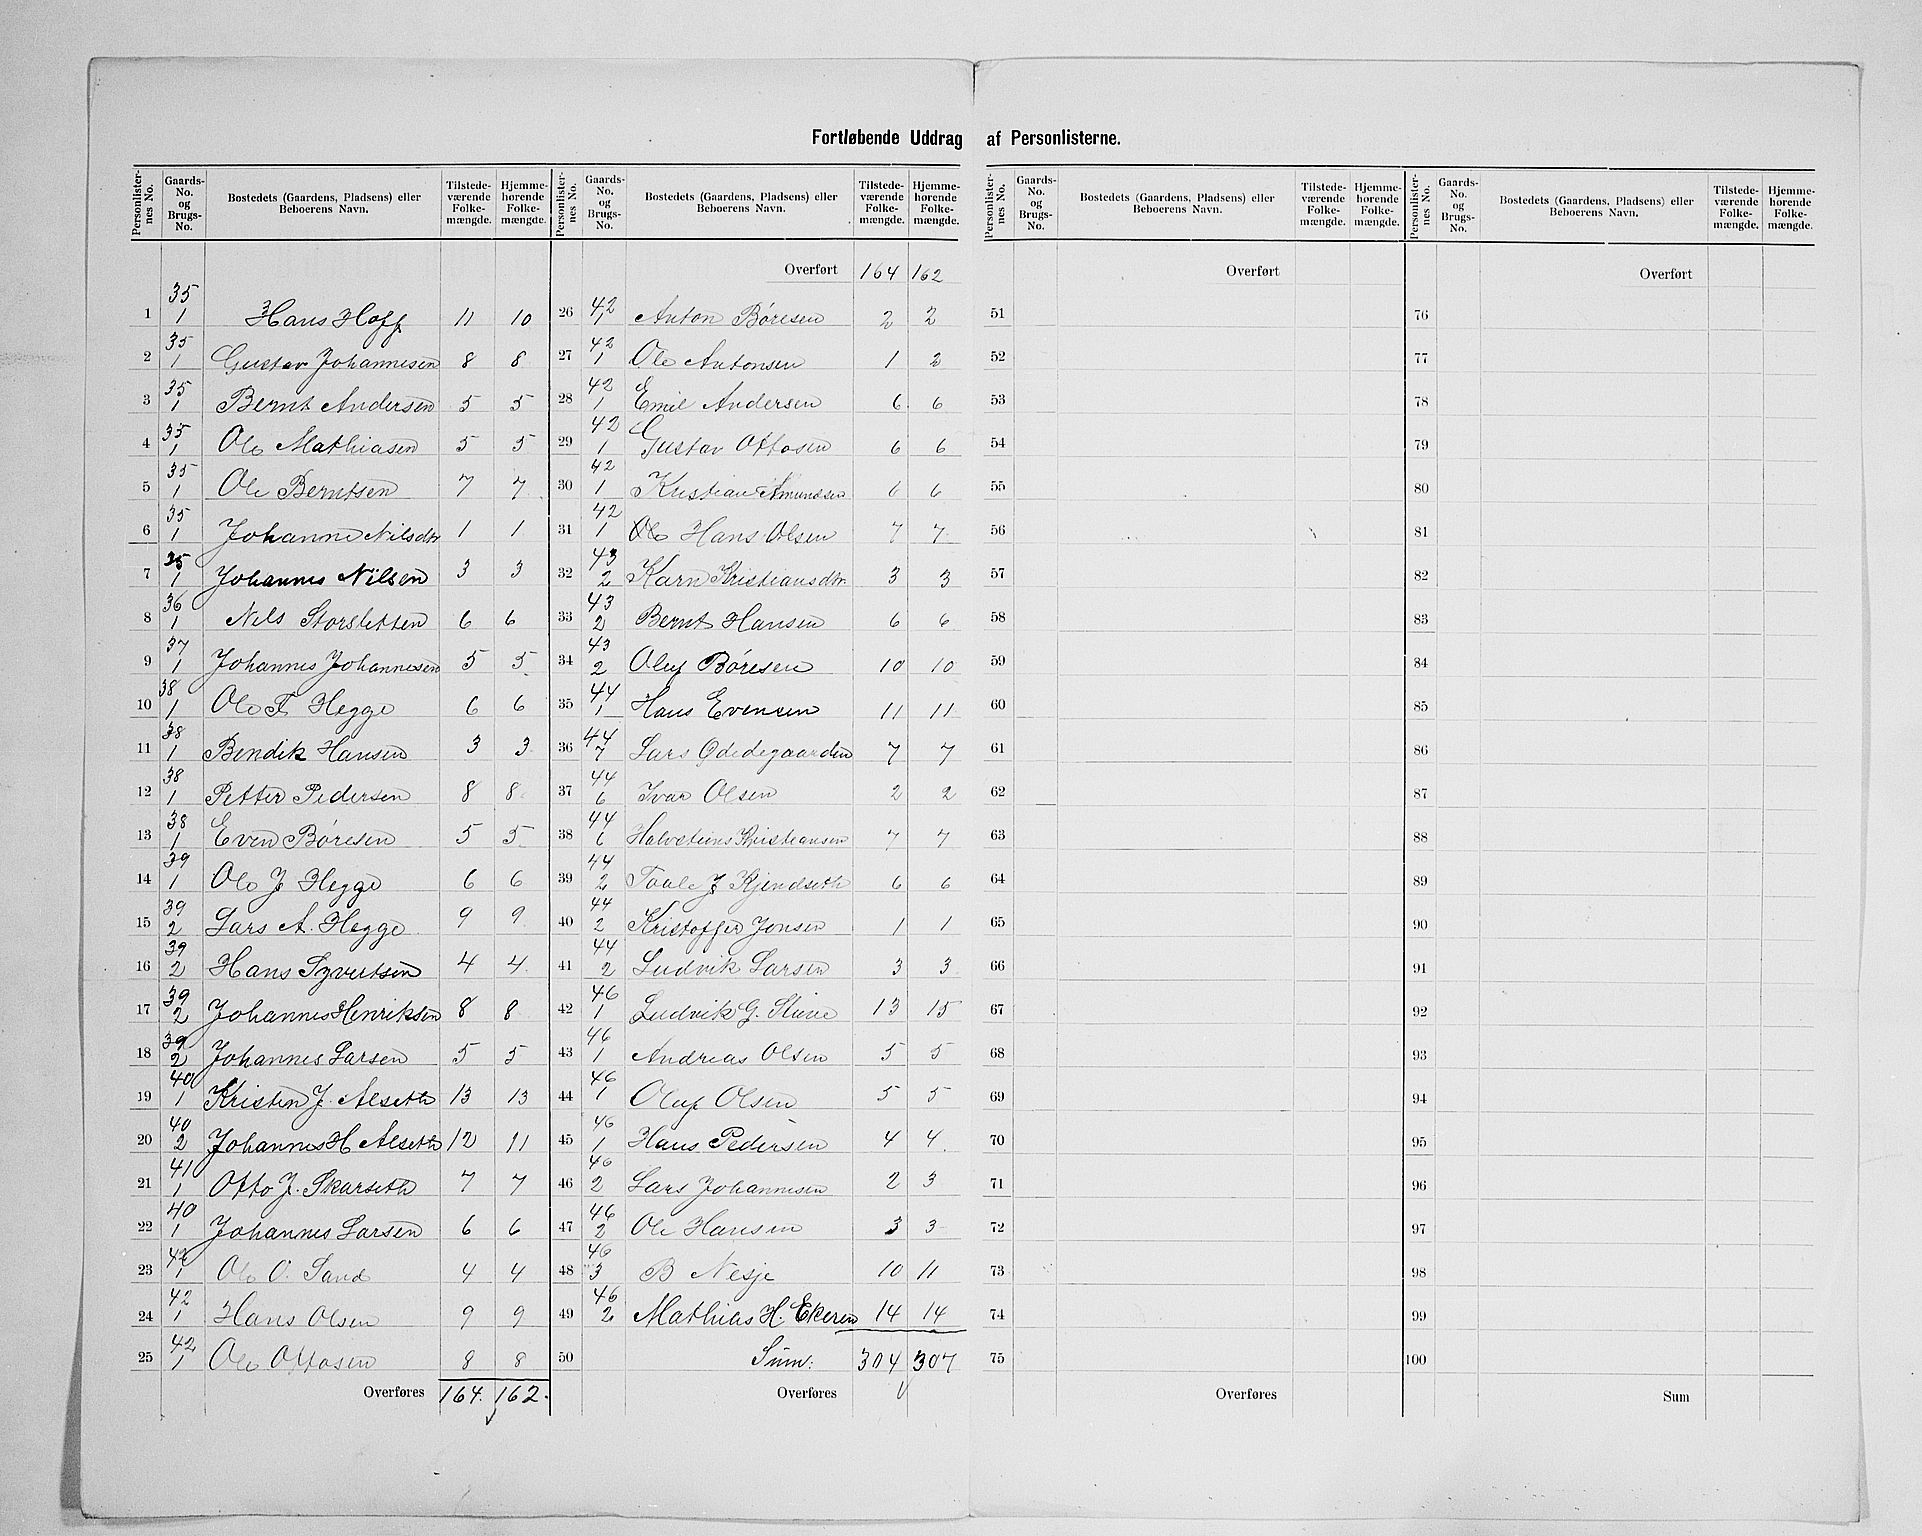 Fortløbende Uddrag af Personlisterne.
Personlister-nes No. Gaards-No. og Brugs-No. Bostedets (Gaardens, Pladsens) eller Beboerens Navn. Tilstede-værende Folke-mængde. Hjemme-hørende Folke-mængde.
1 35/1 Hans Hoff 11 10
2 35/1 Gustav Johannesen 8 8
3 35/1 Bernt Andersen 5 5
4 35/1 Ole Mathiasen 5 5
5 35/1 Ole Berntsen 7 7
6 35/1 Johanne Nilsdtr 1 1
7 35/1 Johannes Nilsen 3 3
8 36/1 Nils Storsletten 6 6
9 37/1 Johannes Johannesen 5 5
10 38/1 Ole F Hegge 6 6
11 38/1 Bendik Hansen 3 3
12 38/1 Petter Pedersen 8 8
13 38/1 Even Børesen 5 5
14 39/1 Ole J Hegge 6 6
15 39/2 Lars A. Hegge 9 9
16 39/2 Hans Syvertsen 4 4
17 39/2 Johannes Henriksen 8 8
18 39/2 Johannes Larsen 5 5
19 40/1 Kristen J. Alseth 13 13
20 40/2 Johannes H Alseth 12 11
21 41/1 Otto J. Skarseth 7 7
22 40/1 Johannes Larsen 6 6
23 42/1 Ole O. Sand 4 4
24 42/1 Hans Olsen 9 9
25 42/1 Ole Ottosen 8 8
Overføres 164. 162.
Personlister-nes No. Gaards-No. og Brugs-No. Bostedets (Gaardens, Pladsens) eller Beboerens Navn. Tilstede-værende Folke-mængde. Hjemme-hørende Folke-mængde.
Overført 164 162
26 42/1 Anton Børesen 2 2
27 42/1 Ole Antonsen 1 2
28 42/1 Emil Andersen 6 6
29 42/1 Gustav Ottosen 6 6
30 42/1 Kristian Amundsen 6 6
31 42/1 Ole Hans Olsen 7 7
32 43/2 Karn Kristiansdtr. 3 3
33 43/2 Bernt Hansen 6 6
34 43/2 Oluf Børesen 10 10
35 44/1 Hans Evensen 11 11
36 44/7 Lars Ødedegaarden 7 7
37 44/6 Ivar Olsen 2 2
38 44/6 Kristiansen 7 7
39 44/2 J Kjendseth 6 6
40 44/2 Kristoffer Jonsen 1 1
41 44/2 Ludvik Larsen 3 3
42 46/1 Ludvik G. 13 15
43 46/1 Andreas Olsen 5 5
44 46/1 Oluf Olsen 5 5
45 46/1 Hans Pedersen 4 4
46 46/2 Lars Johannesen 2 3
47 46/2 Ole Hansen 3 3
48 46/3 B Nesje 10 11
49 46/2 Mathias H. Ekeren 14 14
50 Sum: 304 307
Overføres
Personlister-nes No. Gaards-No. og Brugs-No. Bostedets (Gaardens, Pladsens) eller Beboerens Navn. Tilstede-værende Folke-mængde. Hjemme-hørende Folke-mængde.
Overført
51
52
53
54
55
56
57
58
59
60
61
62
63
64
65
66
67
68
69
70
71
72
73
74
75
Overføres
Personlister-nes No. Gaards-No. og Brugs-No. Bostedets (Gaardens, Pladsens) eller Beboerens Navn. Tilstede-værende Folke-mængde. Hjemme-hørende Folke-mængde.
Overført
76
77
78
79
80
81
82
83
84
85
86
87
88
89
90
91
92
93
94
95
96
97
98
99
100
Sum